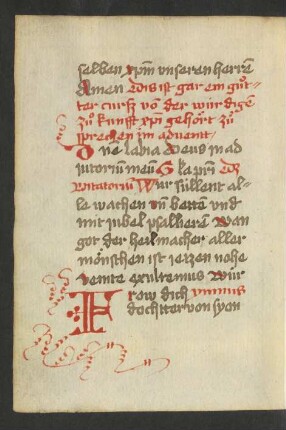 selben xpm̄ vnseren herrē
Amen Dis ist gar ein gůt-
ter curß vō der wirdigē
zůkunfft xpi gehört zů
sprechen jm aduent
One labia Deus in ad
iutoriū meū Gla pr̄i
Jnuitatoriū Wir süllent al-
so wachen vn̄ betten vnd
mit jubel psalieren wan
got der heilmacher aller
mönschen ist yetzen nohe
venite exultemus Wir
Frow dich ymnus
dochter von syon